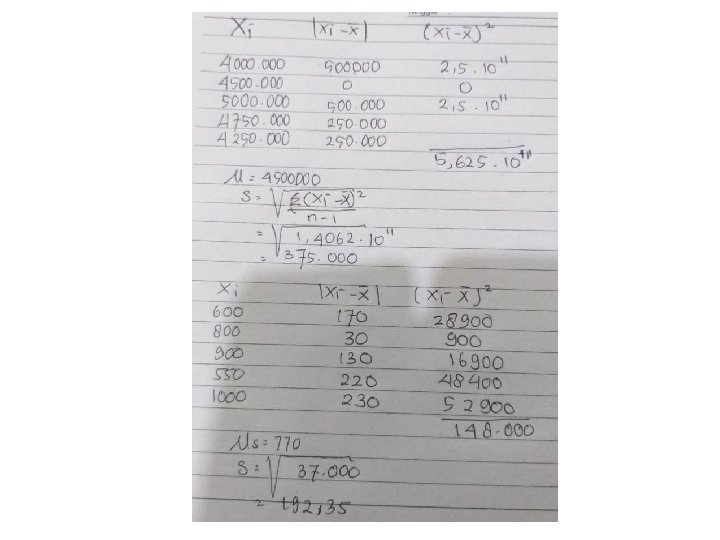 Xi |xi-x̄| (xi-x̄)²
4000.000 500000 2,5.10¹¹
4500.000 0 0
5000.000 500.000 2,5.10¹¹
4750.000 250.000
4250.000 250.000
5,625.10¹¹
μ = 4500000
S = √Σ(xi-x̄)²
n-1
= √1,4062.10¹¹
= 375.000
Xi |xi-x̄| (xi-x̄)²
600 170 28900
800 30 900
900 130 16900
550 220 48400
1000 230 52900
148.000
μs = 770
S = √37.000
= 192,35